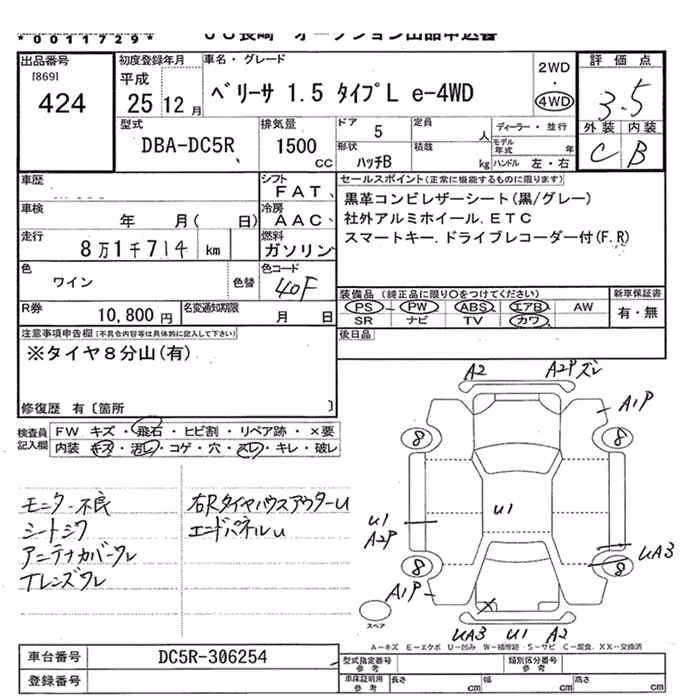 *0011729*
出品番号
[869]
424
初度登録年月
平成
25 12月
車名・グレード
ベリーサ 1.5 タイプL e-4WD
2WD
・
4WD
評価点
3.5
外装 内装
C B
型式
DBA-DC5R
排気量
1500
CC
ドア
5
形状
ハッチB
定員
人
積載
kg
ディーラー・並行
モデル年式 年
ハンドル 左・右
車歴
シフト
FAT
車検
年 月( 日)
冷房
AAC
走行
8万1千714 km
燃料
ガソリン
色
ワイン
色替
色コード
40F
R券
10,800円
名変通知期限
月 日
セールスポイント(正常に機能するものに限ります)
黒革コンビレザーシート(黒/グレー)
社外アルミホイール.ETC
スマートキー.ドライブレコーダー付(F.R)
装備品 (純正品に限り○をつけてください)
PS PW ABS エアB AW
SR ナビ TV カワ
新車保証書
有・無
後日品
注意事項申告欄(不具合内容等は具体的に記入して下さい)
※タイヤ8分山(有)
修復歴 有〔箇所 〕
検査員記入欄
FW キズ・飛石・ヒビ割・リペア跡・×要
内装 キズ・汚レ・コゲ・穴・スレ・キレ・破レ
モニター不良
シートシワ
アンテナカバーワレ
Tレンズワレ
右RタイヤハウスアウターU
エンドパネルU
A2
A2Pズレ
A1P
8
8
U1
U1
A2P
UA3
8
8
A1P
スペア
UA3 U1 A2
A-キズ E-エクボ U-凹み W-補修跡 S-サビ C-腐食 XX-交換済
車台番号
DC5R-306254
登録番号
型式指定番号
参考
類別区分番号
参考
車庫証明用
参考
長さ cm
幅 cm
高さ cm